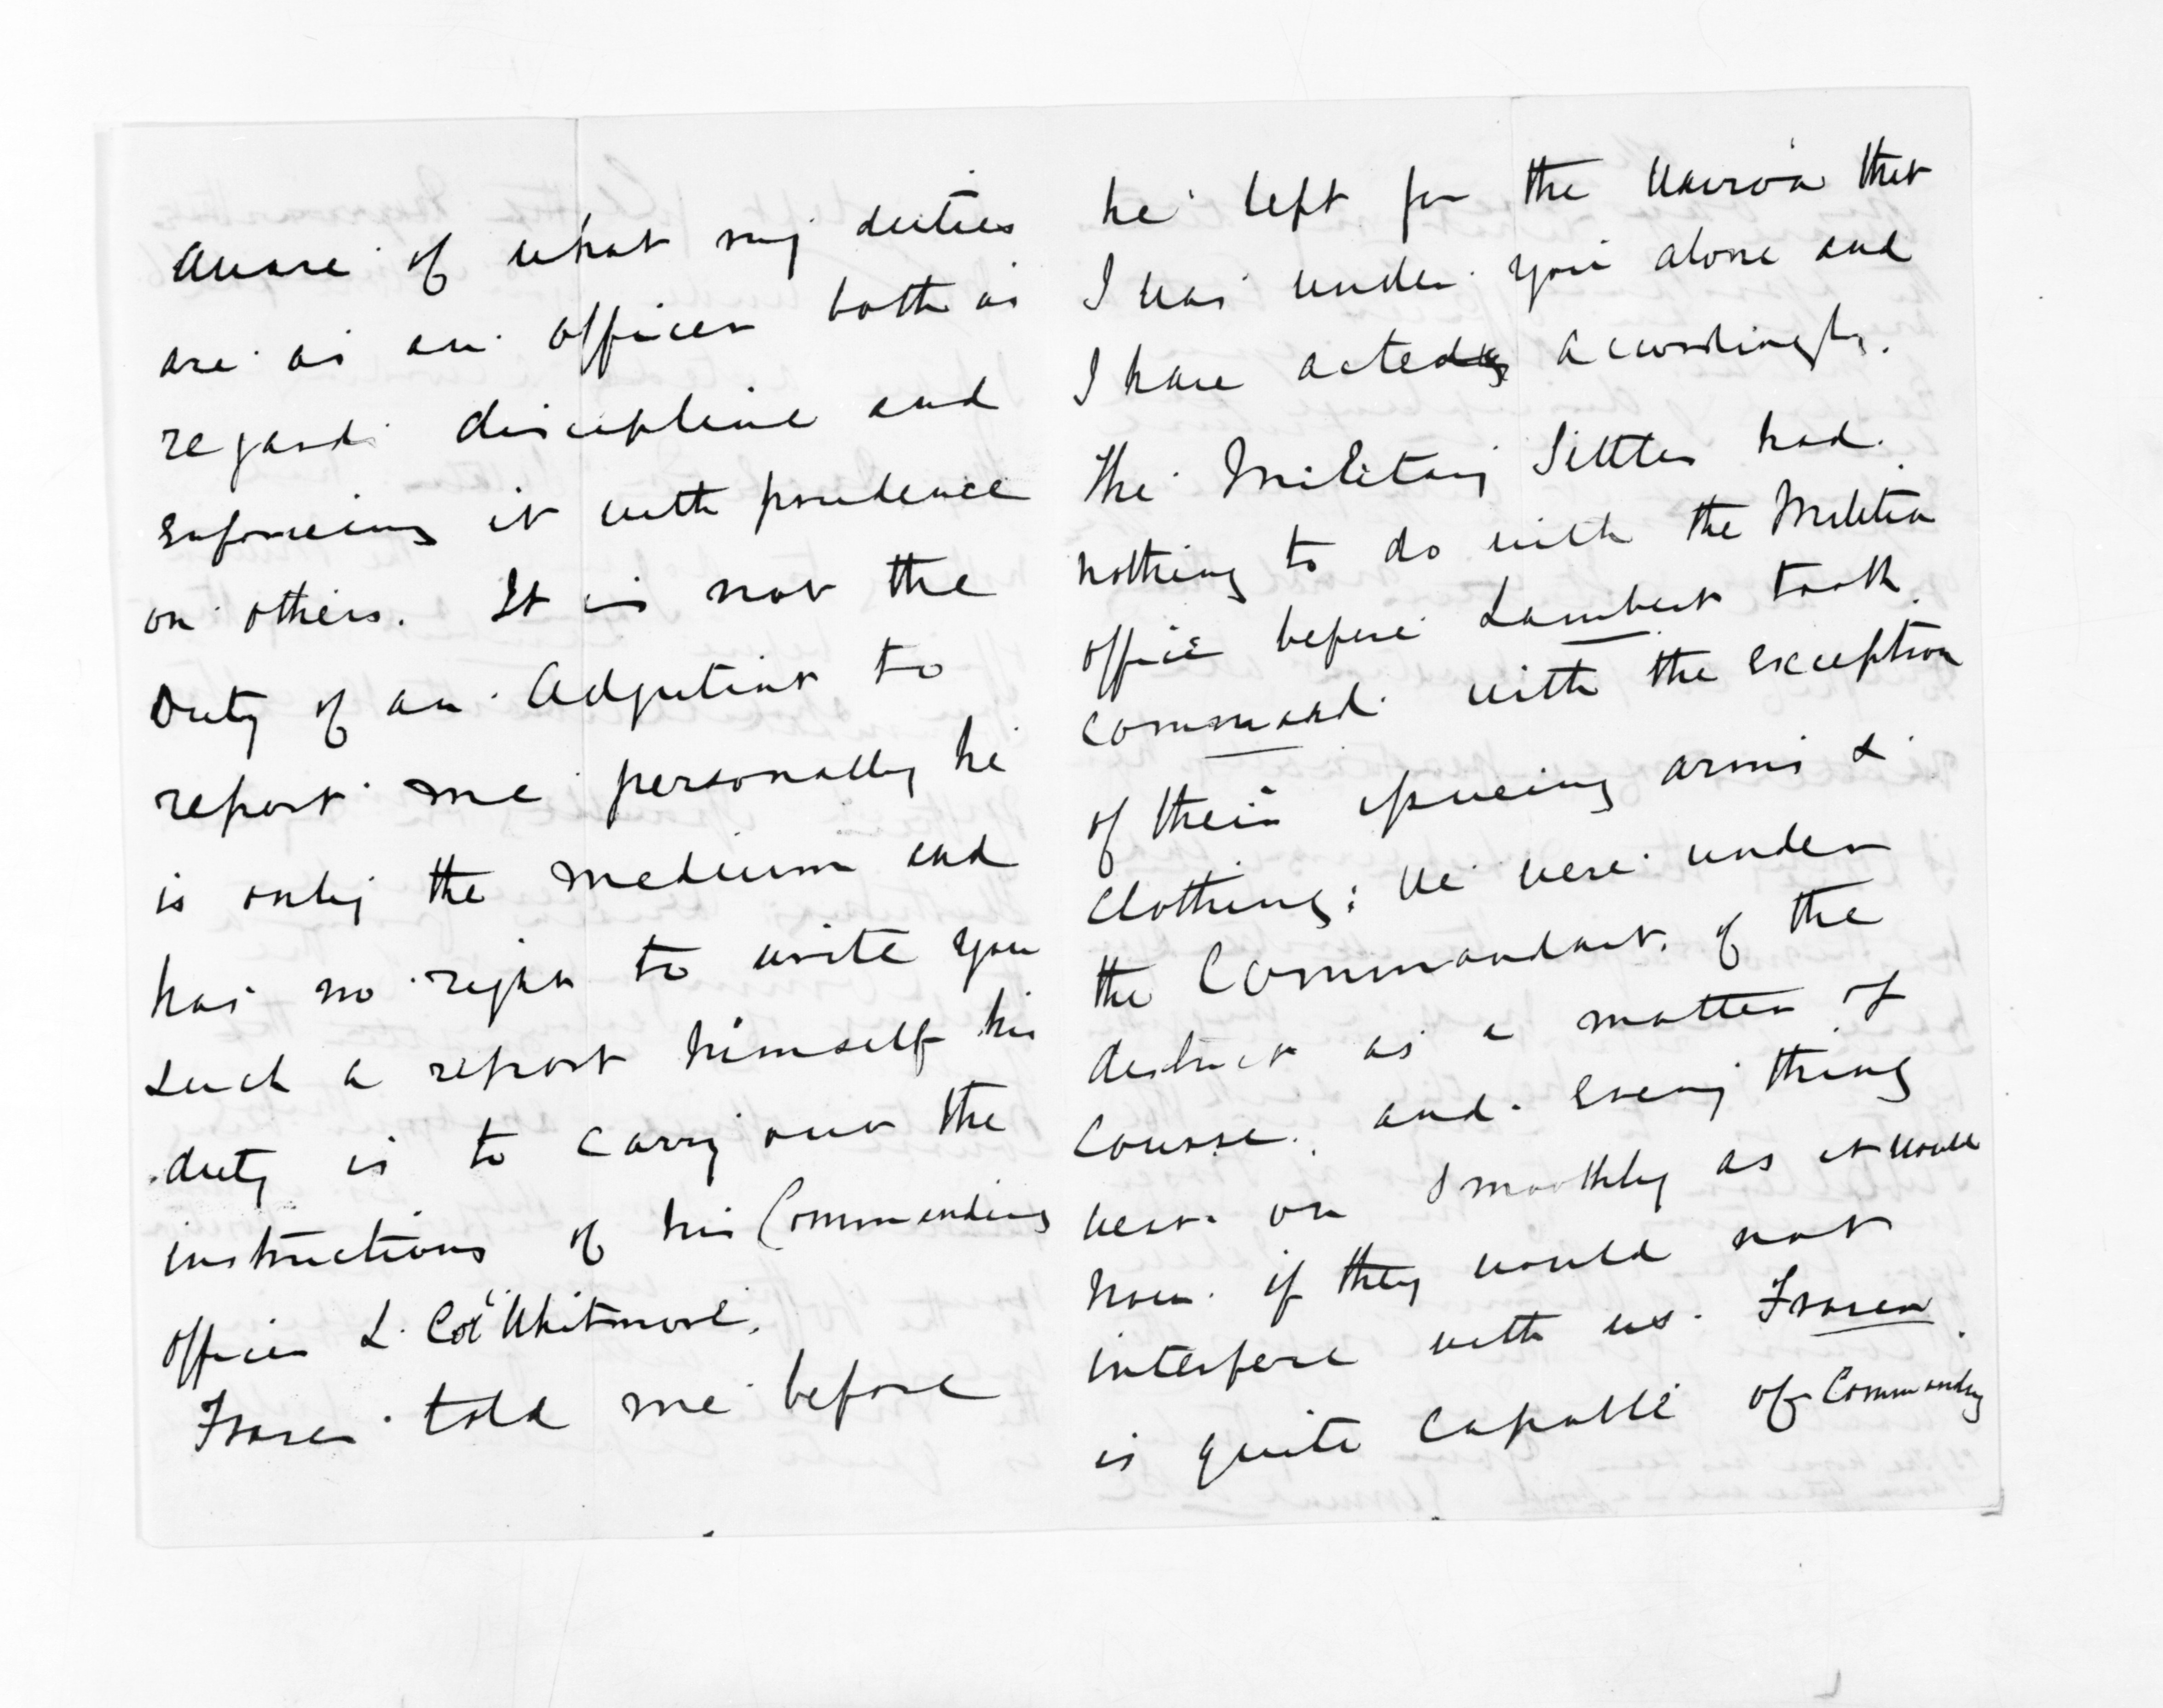 aware of what my duties
are as an officer both as
regards discipline and
enforcing it with prudence
on others. It is not the
Duty of an Adjutant to
report me personally he
is only the medium and
has no right to write you
such a report himself his
duty is to carry out the
instructions of his Commanding
officer L. Col Whitmore.
Fraser told me before
he left for the Wairoa that
I was under you alone and
I have acted accordingly.
The Military Settlers had
nothing to do with the Militia
office before Lambert took
command with the exception
of their issueing arms &
clothing; we were under
the Commandant of the
district as a matter of
course. and every thing
went on smoothly as it would
now if they would not
interfere with us. Fraser
is quite capable of Commanding